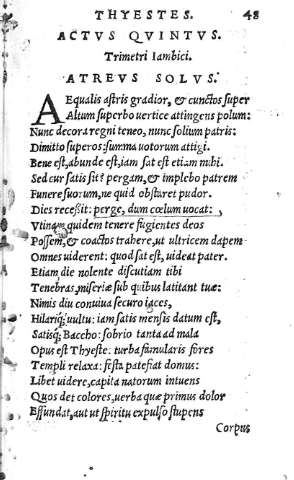 THYESTES. 48
ACTVS QVINTVS.
Trimetri Iambici.
ATREVS SOLVS.
AEqualis astris gradior, & cunctos super
Altum superbo uertice attingens polum:
Nunc decora regni teneo, nunc solium patris:
Dimitto superos: summa uotorum attigi.
Bene est, abunde est, iam sat est etiam mihi.
Sed cur satis sit? pergam, & implebo patrem
Funere suorum, ne quid obstaret pudor.
Dies recessit: perge, dum cœlum uocat:
Vtinam quidem tenere fugientes deos
Possem, & coactos trahere, ut ultricem dapem
Omnes uiderent: quod sat est, uideat pater.
Etiam die nolente discutiam tibi
Tenebras, miseriæ sub quibus latitant tuæ:
Nimis diu conuiua securo iaces,
Hilariq; uultu: iam satis mensis datum est,
Satisq; Baccho: sobrio tanta ad mala
Opus est Thyeste: turba famularis fores
Templi relaxa: festa patefiat domus:
Libet uidere, capita natorum intuens
Quos det colores, uerba quæ primus dolor
Effundat, aut ut spiritu expulso stupens
Corpus